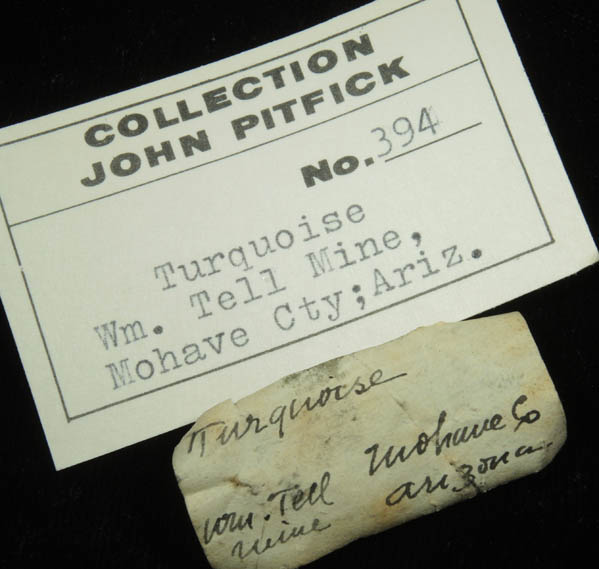 COLLECTION
JOHN PITFICK
No. 394
Turquoise
Wm. Tell Mine,
Mohave Cty;Ariz.
Turquoise
Wm. Tell Mohave Co
mine arizona.